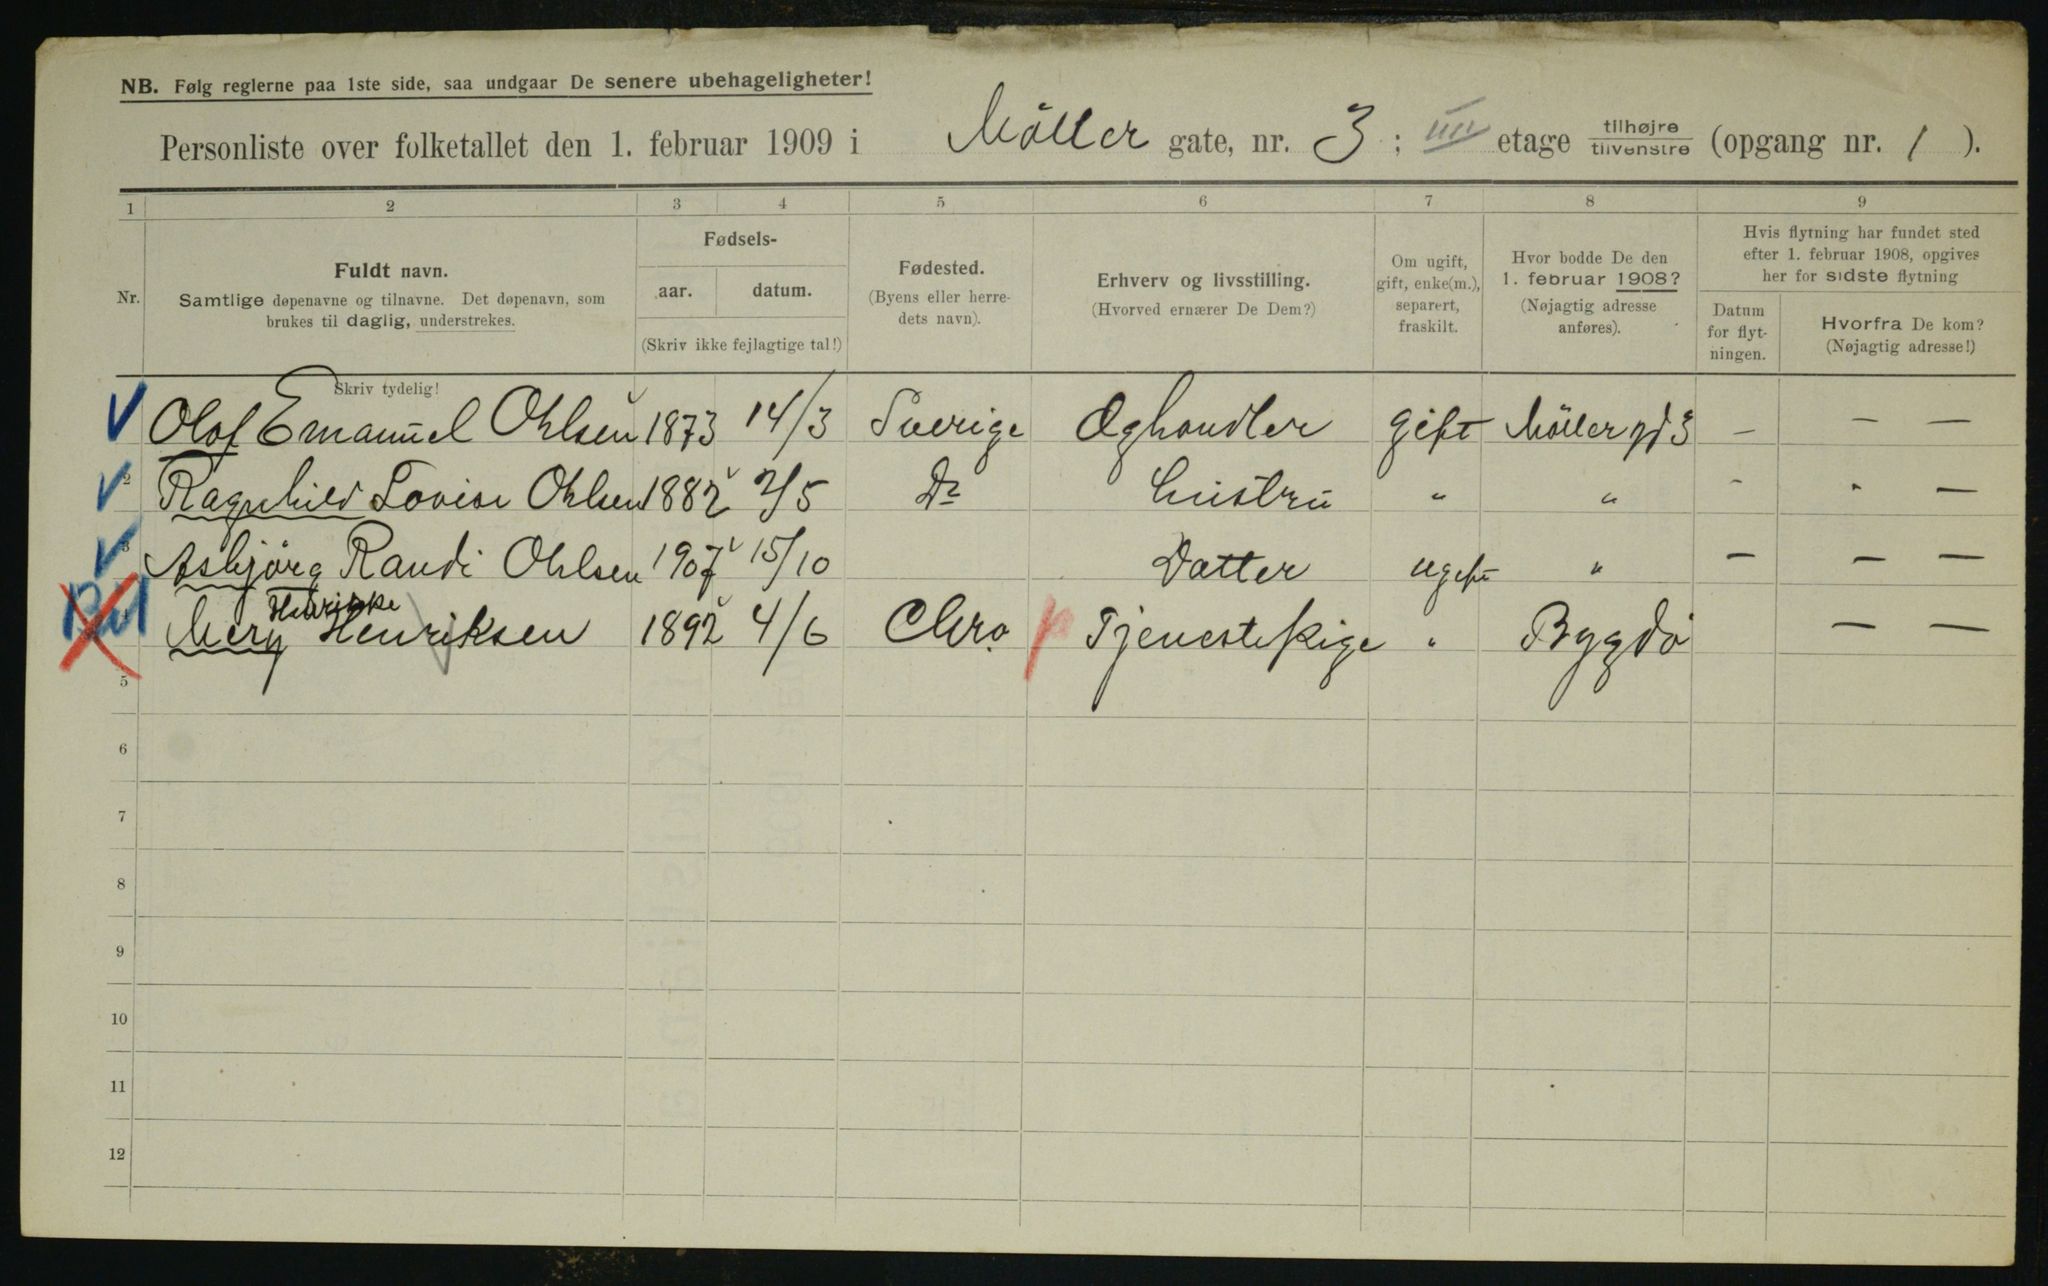 NB. Følg reglerne paa 1ste side, saa undgaar De senere ubehageligheter!
Personliste over folketallet den 1. februar 1909 i Möller gate, nr. 3 ; III etage tilhøjre tilvenstre (opgang nr. 1 ).
1 2 3 4 5 6 7 8 9
Nr. Fuldt navn. Samtlige døpenavne og tilnavne. Det døpenavn, som brukes til daglig, understrekes.
Fødsels- aar. datum. (Skriv ikke fejlagtige tal!)
Fødested. (Byens eller herredets navn).
Erhverv og livsstilling. (Hvorved ernærer De Dem?)
Om ugift, gift, enke(m.), separert, fraskilt.
Hvor bodde De den 1. februar 1908? (Nøjagtig adresse anføres).
Hvis flytning har fundet sted efter 1. februar 1908, opgives her for sidste flytning
Datum for flytningen. Hvorfra De kom? (Nøjagtig adresse!)
Skriv tydelig!
Olof Emanuel Ohlsen 1873 14/3 Sverige Æghandler gift Möllergd 3 — — —
2 Ragnhild Lovise Ohlsen 1882 2/5 Do Hustru " " - - —
3 Asbjörg Randi Ohlsen 1907 15/10 Datter ugift " — — —
Henrikke
Mery Henriksen 1892 4/6 Chra Tjenestepige " Bygdö — —
5
6
7
8
9
10
11
12